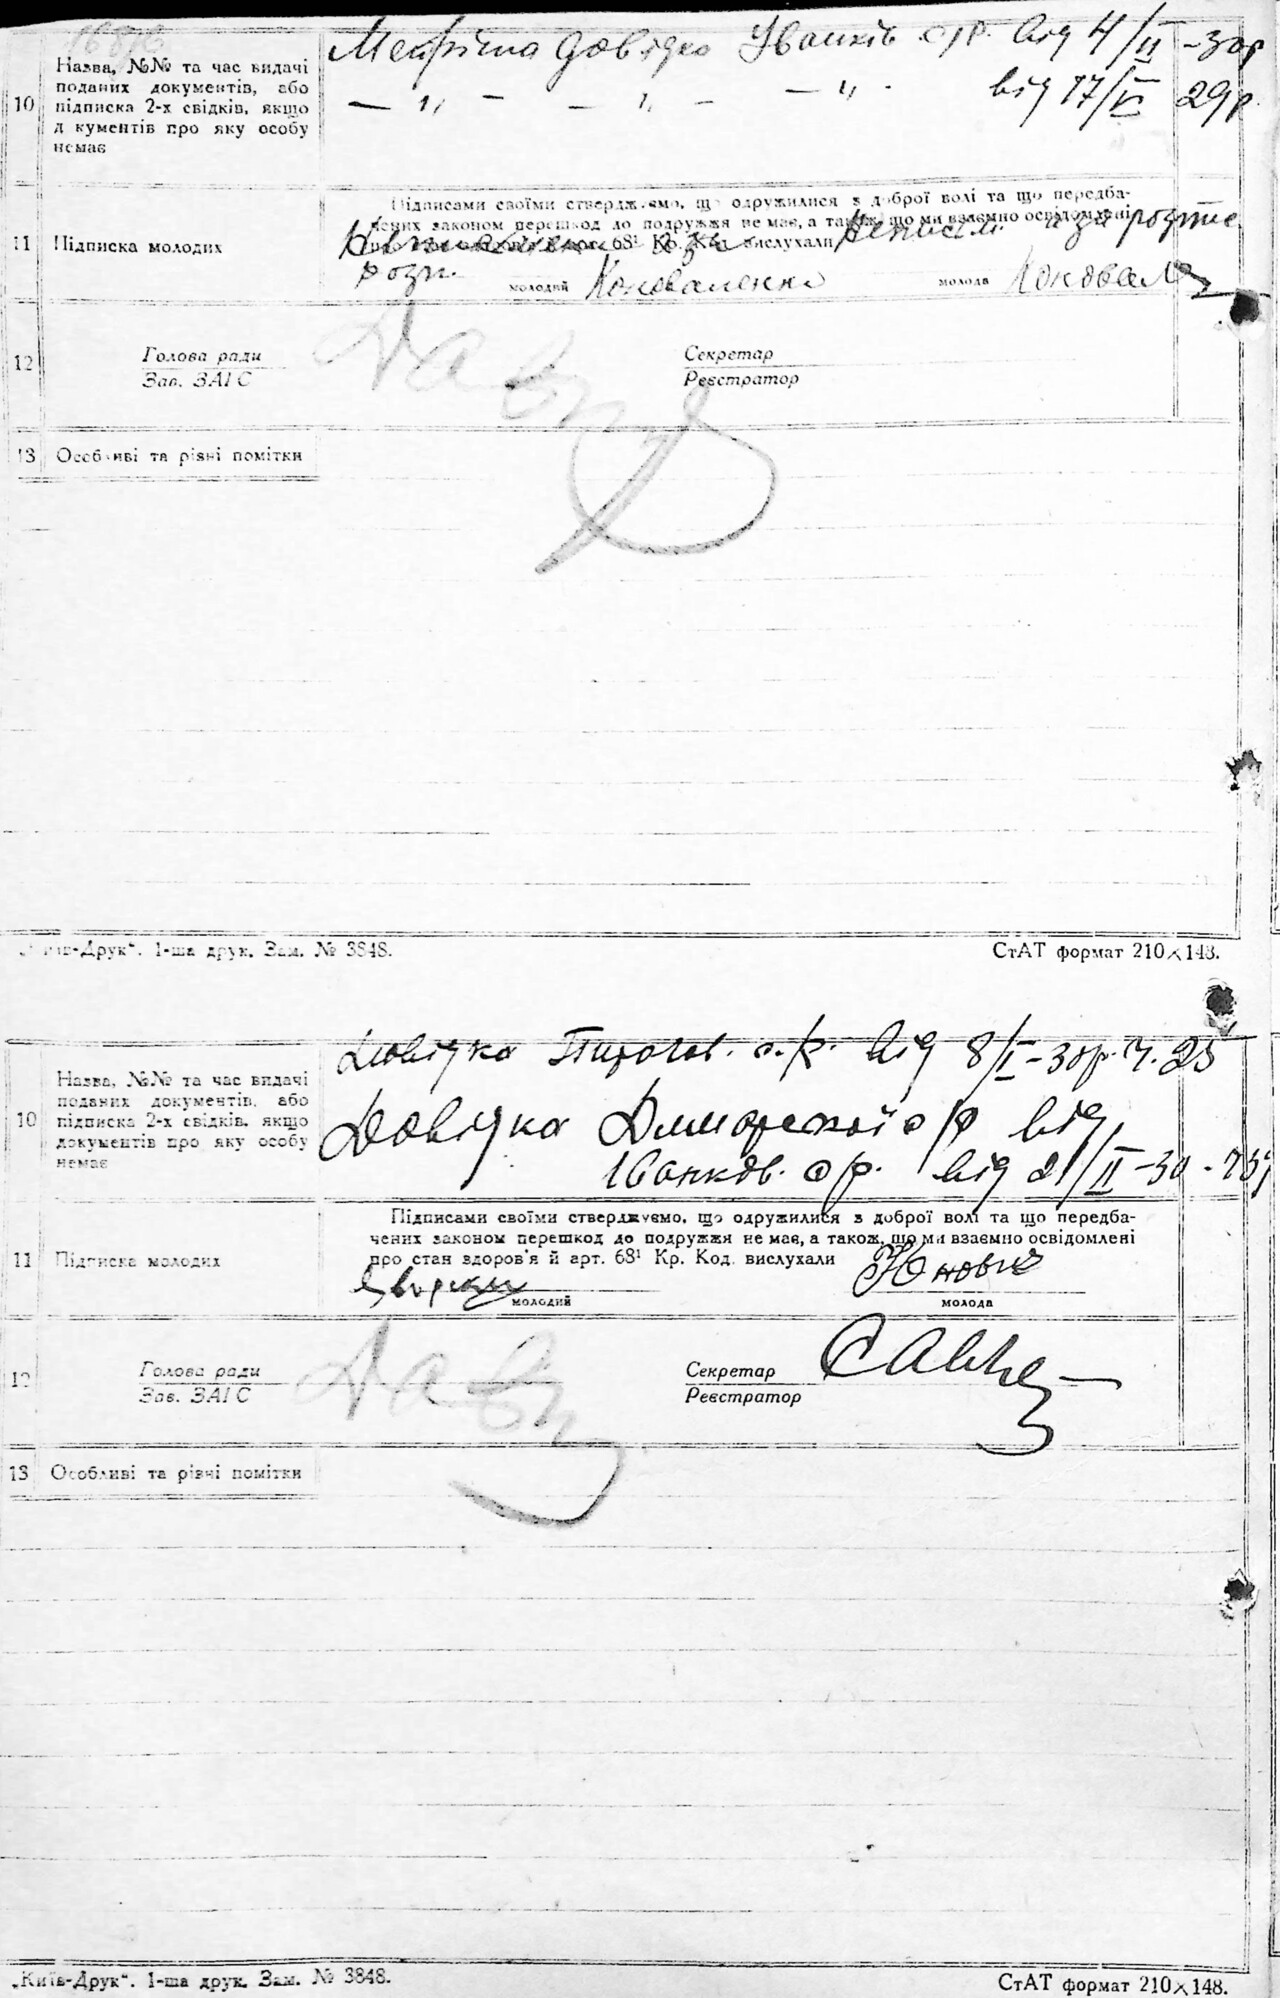 Метрична довідка Іванків. с/р. від 4/II - 30р
10
Назва, №№ та час видачі
поданих документів, або
підписка 2-х свідків, якщо
д кументів про яку особу
немає
— „ — — „ — — „ . від 17/ 29р.
Підписами своїми стверджуємо, що одружилися з доброї волі та що передба-
чених законом перешкод до подружжя не має, а також, що ми взаємно освідомлені
68¹ Кр. Код. вислухали
11 Підписка молодих
розп.
молодий Коноваленко молода Коновал
12
Голова ради
Зав. ЗАГС
Секретар
Реєстратор
13 Особливі та різні помітки
„Київ-Друк“. 1-ша друк. Зам. № 3848.
СтАТ формат 210×148.
Довідка Пирогов. с./р. від 8/I - 30р. ч. 25
10
Назва, №№ та час видачі
поданих документів, або
підписка 2-х свідків, якщо
документів про яку особу
немає
Довідка с/р від
Іванков. с/р. від 21/II - 30
Підписами своїми стверджуємо, що одружилися з доброї волі та що передба-
чених законом перешкод до подружжя не має, а також, що ми взаємно освідомлені
про стан здоров'я й арт. 68¹ Кр. Код. вислухали
11 Підписка молодих
молодий
молода
12
Голова ради
Зав. ЗАГС
Секретар
Реєстратор
13 Особливі та різні помітки
„Київ-Друк“. 1-ша друк. Зам. № 3848.
СтАТ формат 210×148.